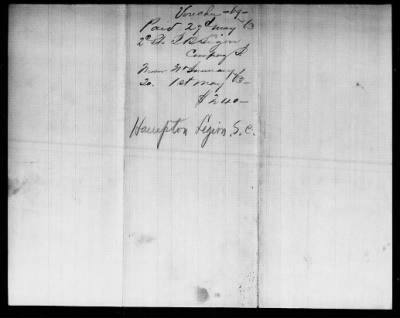 Voucher - 69 -
Paid 27th May / 63
2d Lt. T. B.
Company
From 1st January
to. 1st May / 63 -
$ 240 -
Hampton Legion, S. C.